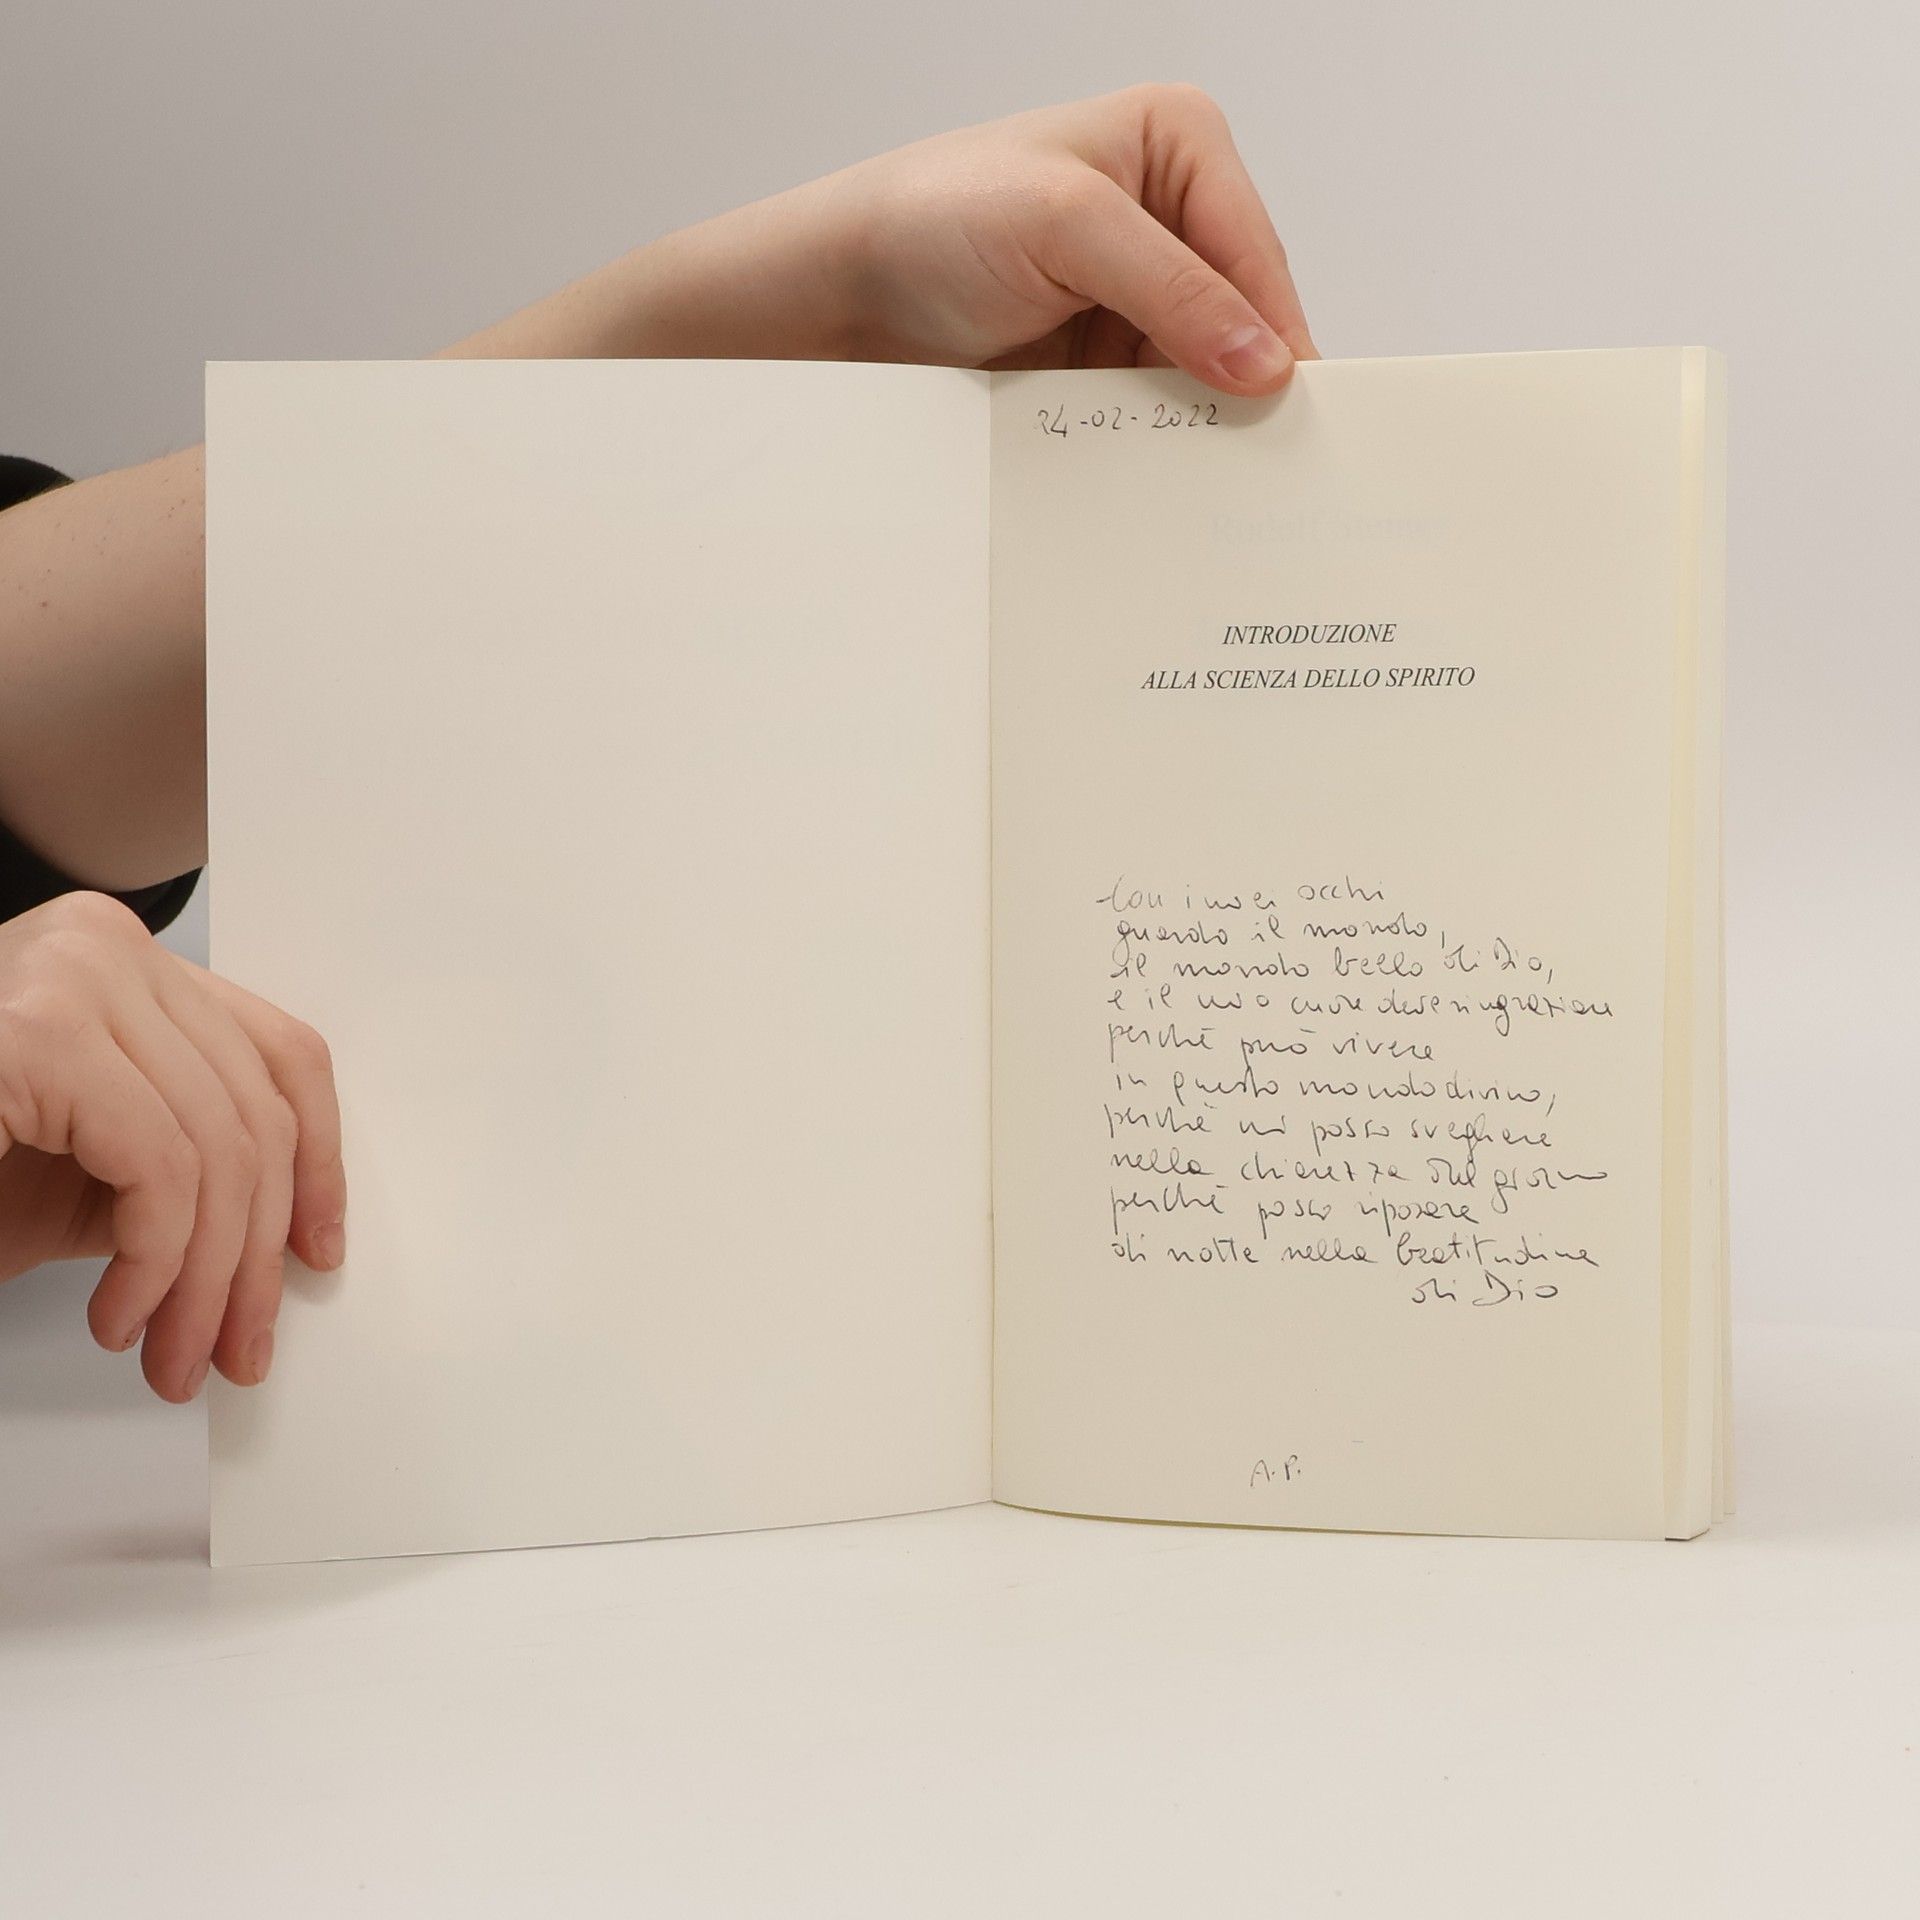 24-02-2022
Rudolf Steiner
INTRODUZIONE
ALLA SCIENZA DELLO SPIRITO
Con i miei occhi
guardo il mondo,
il mondo bello di Dio,
e il mio cuore deve ringraziare
perché può vivere
in questo mondo divino,
perché mi posso svegliare
nella chiarezza del giorno
perché posso riposare
di notte nella beatitudine
di Dio
A.P.